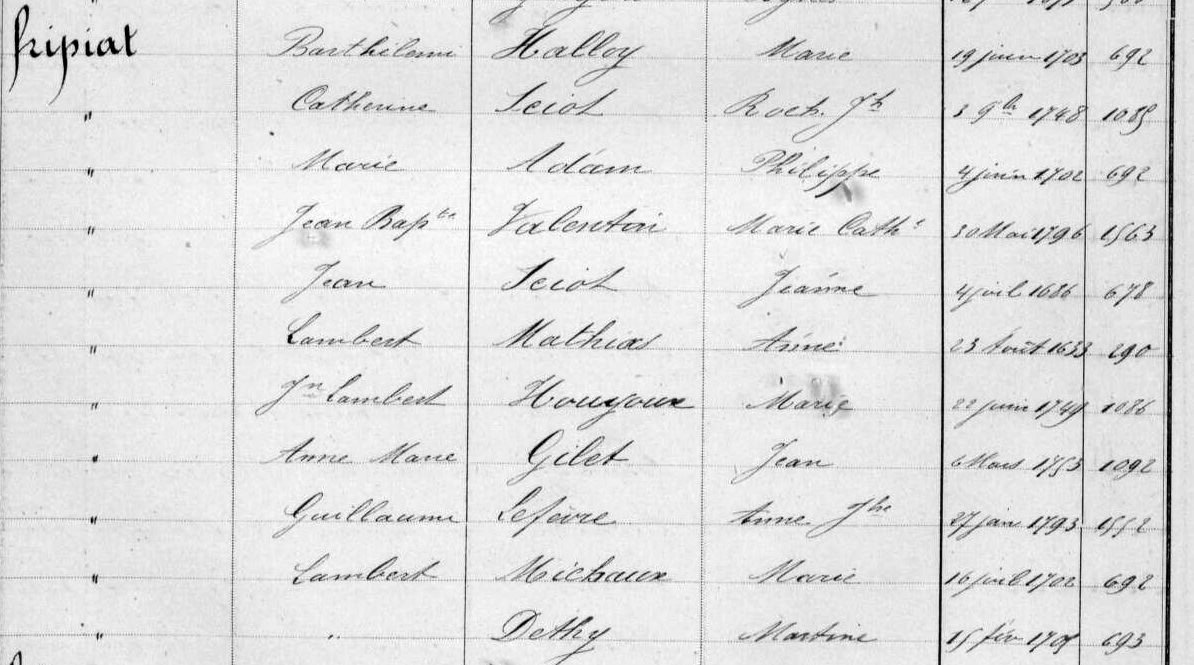 fripiat Barthélemi Halloy Marie 19 juin 1703 692
" Catherine Sciot Roch Jh 3 9bre 1748 1085
" Marie Adam Philippe 4 juin 1702 692
" Jean Bapte Valentin Marie Cathe 30 Mai 1796 1563
" Jean Sciot Jeanne 4 juil 1686 678
" Lambert Mathias Anne 23 Août 1633 290
" Jn Lambert Houyoux Marie 22 juin 1749 1086
" Anne Marie Gilet Jean 6 Mars 1753 1092
" Guillaume Lefèvre Anne Jhe 27 jan 1793 1552
" Lambert Michaux Marie 16 juil 1702 692
" " Dethy Martine 15 fév 693